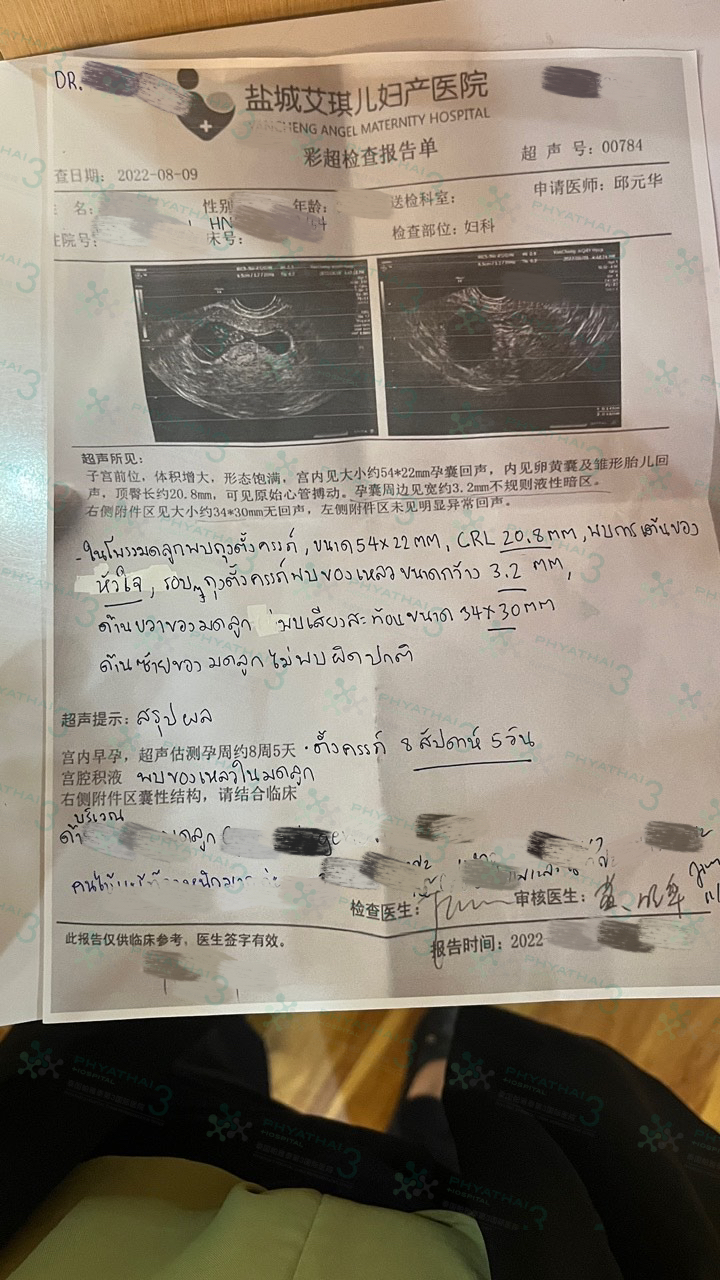 DR.
盐城艾琪儿妇产医院
YANCHENG ANGEL MATERNITY HOSPITAL
彩超检查报告单
超声号：00784
查日期：2022-08-09
名：
性别
年龄：
送检科室：
申请医师：邱元华
住院号：
HN
床号：
检查部位：妇科
超声所见：
子宫前位，体积增大，形态饱满，宫内见大小约54*22mm孕囊回声，内见卵黄囊及雏形胎儿回
声，顶臀长约20.8mm，可见原始心管搏动。孕囊周边见宽约3.2mm不规则液性暗区。
右侧附件区见大小约34*30mm无回声，左侧附件区未见明显异常回声。
- ในโพรงมดลูกพบถุงตั้งครรภ์, ขนาด 54x22 MM, CRL 20.8MM, พบการเต้นของ
หัวใจ, รอบๆถุงตั้งครรภ์พบของเหลวขนาดกว้าง 3.2 MM,
ด้านขวาของมดลูก พบเสียงสะท้อนขนาด 34x30MM
ด้านซ้ายของมดลูกไม่พบผิดปกติ
超声提示：สรุปผล
宫内早孕，超声估测孕周约8周5天 · ตั้งครรภ์ 8 สัปดาห์ 5 วัน
宫腔积液 พบของเหลวในมดลูก
右侧附件区囊性结构，请结合临床
บริเวณ
มดลูก
检查医生：
审核医生：
此报告仅供临床参考，医生签字有效。
报告时间：2022
PHYATHAI 3
HOSPITAL